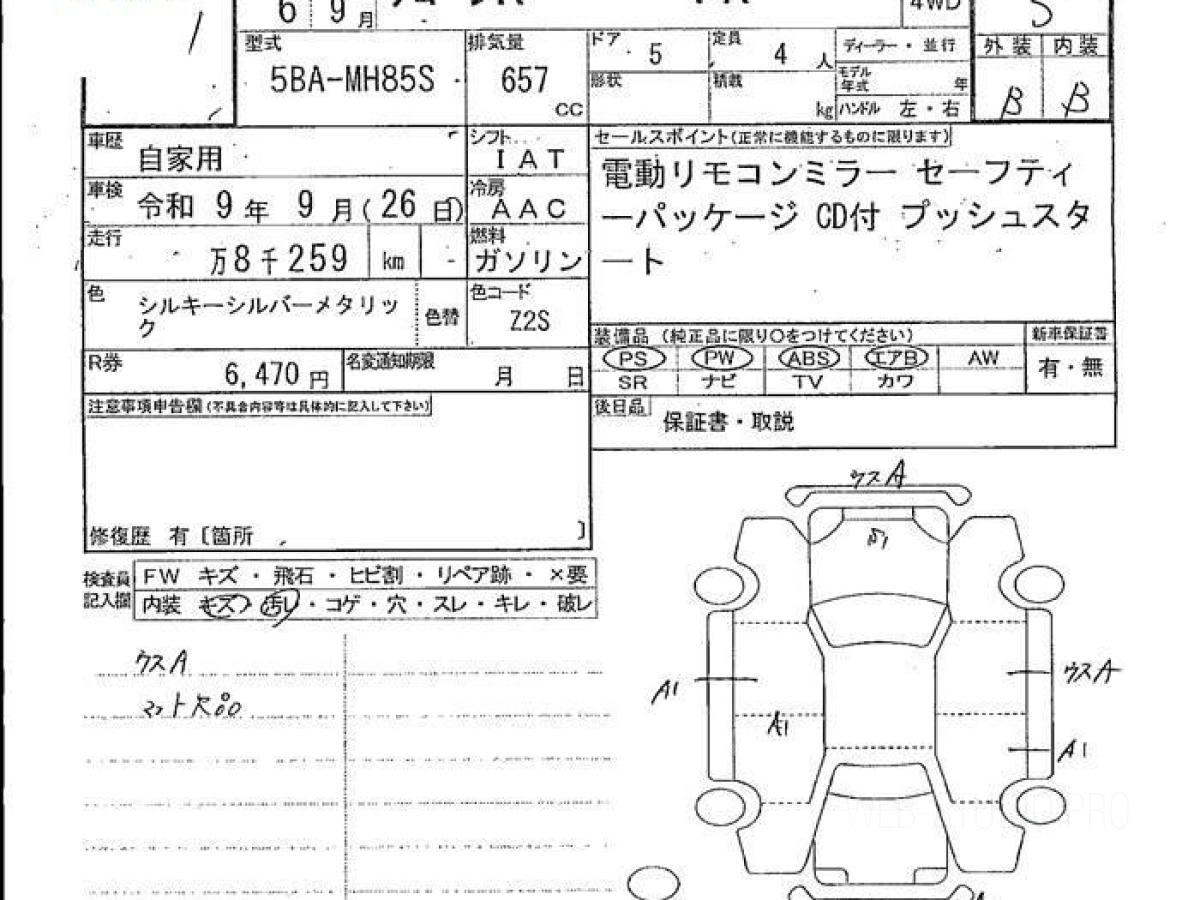 6 9月
4WD
S
型式 排気量 ドア 5 定員 4 人 ディーラー・並行 外装 内装
5BA-MH85S 657 CC 形状 積載 kg モデル年式 年 B B
ハンドル 左・右
車歴 自家用 シフト IAT
車検 令和 9年 9月(26日) 冷房 AAC
走行 万8千259 km 燃料 ガソリン
色 シルキーシルバーメタリック 色替 色コード Z2S
R券 6,470円 名変通知期限 月 日
セールスポイント(正常に機能するものに限ります)
電動リモコンミラー セーフティ
ーパッケージ CD付 プッシュスタ
ート
装備品 (純正品に限り〇をつけてください) 新車保証書
PS PW ABS エアB AW 有・無
SR ナビ TV カワ
後日品 保証書・取説
注意事項申告欄(不具合内容等は具体的に記入して下さい)
修復歴 有〔箇所 〕
検査員記入欄 FW キズ・飛石・ヒビ割・リペア跡・×要
内装 キズ・汚レ・コゲ・穴・スレ・キレ・破レ
ウスA
マット欠品
ウスA
A1
ウスA
A1
A1